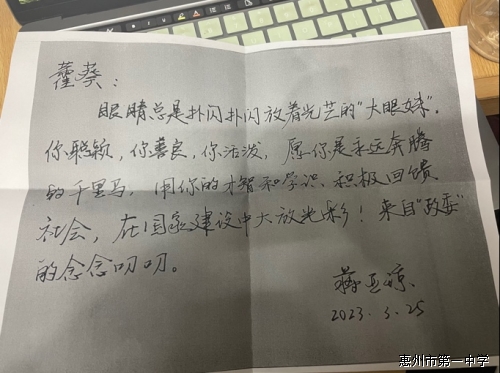 蕴葵：
眼睛总是扑闪扑闪放着光艺的"大眼妹"。
你聪颖，你善良，你活泼，愿你是永远奔腾
的千里马，用你的才智和学识，积极回馈
社会，在国家建设中大放光彩！来自"政委"
的念念叨叨。
蒋亚琼
2023.5.25
惠州市第一中学